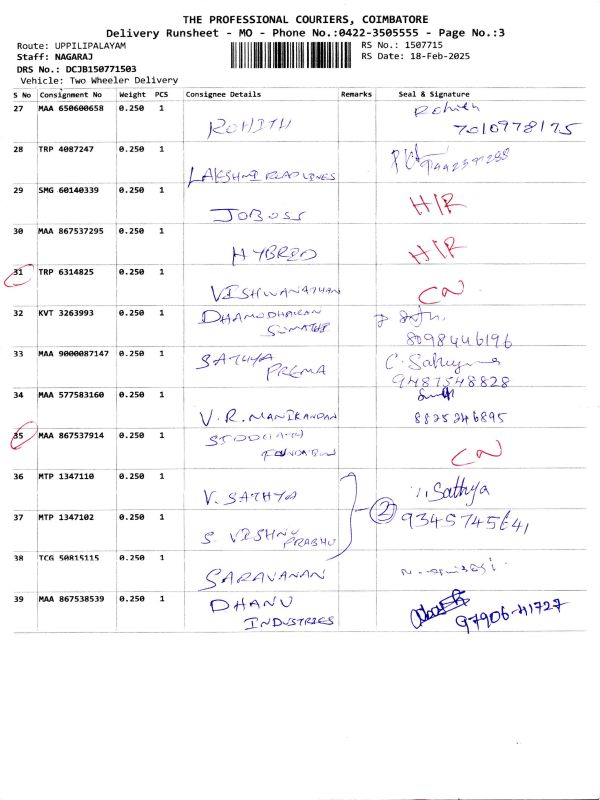 THE PROFESSIONAL COURIERS, COIMBATORE
Delivery Runsheet - MO - Phone No.:0422-3505555 - Page No.:3
Route: UPPILIPALAYAM RS No.: 1507715
Staff: NAGARAJ RS Date: 18-Feb-2025
DRS No.: DCJB150771503
Vehicle: Two Wheeler Delivery
S No Consignment No Weight PCS Consignee Details Remarks Seal & Signature
27 MAA 650600658 0.250 1 Rohith
ROHITH 7010978175
28 TRP 4087247 0.250 1
LAKSHMI ROADLINES
29 SMG 60140339 0.250 1 H/R
JOBOSS
30 MAA 867537295 0.250 1 H/R
HYBRED
31 TRP 6314825 0.250 1
VISHWANATHAN CN
32 KVT 3263993 0.250 1 DHAMODHARAN
SUMATHI 8098446196
33 MAA 9000087147 0.250 1 SATHYA C. Sathya
PREMA 9487548828
34 MAA 577583160 0.250 1
V.R. MANIKANDAN 8825246895
35 MAA 867537914 0.250 1 CN
FOUNDATION
36 MTP 1347110 0.250 1 Sathya
V. SATHYA 2
37 MTP 1347102 0.250 1 9345745641
S. VISHNU PRABHU
38 TCG 50815115 0.250 1
SARAVANAN
39 MAA 867538539 0.250 1 DHANU
INDUSTRIES 97906-41727